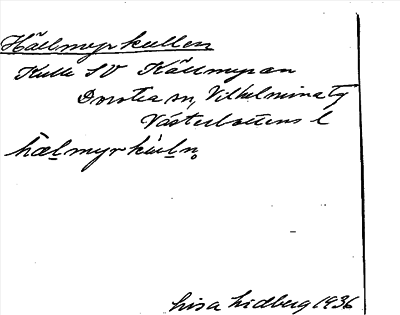 Hällmyrkullen
Kulle SV Hällmyran
Dorotea sn, Vilhelmina tg
Västerbottens l
hælmyrkuln
Lisa Lidberg 1936